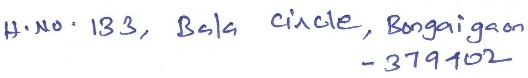 H.No. 133, Bala Circle, Bongaigaon
- 379402